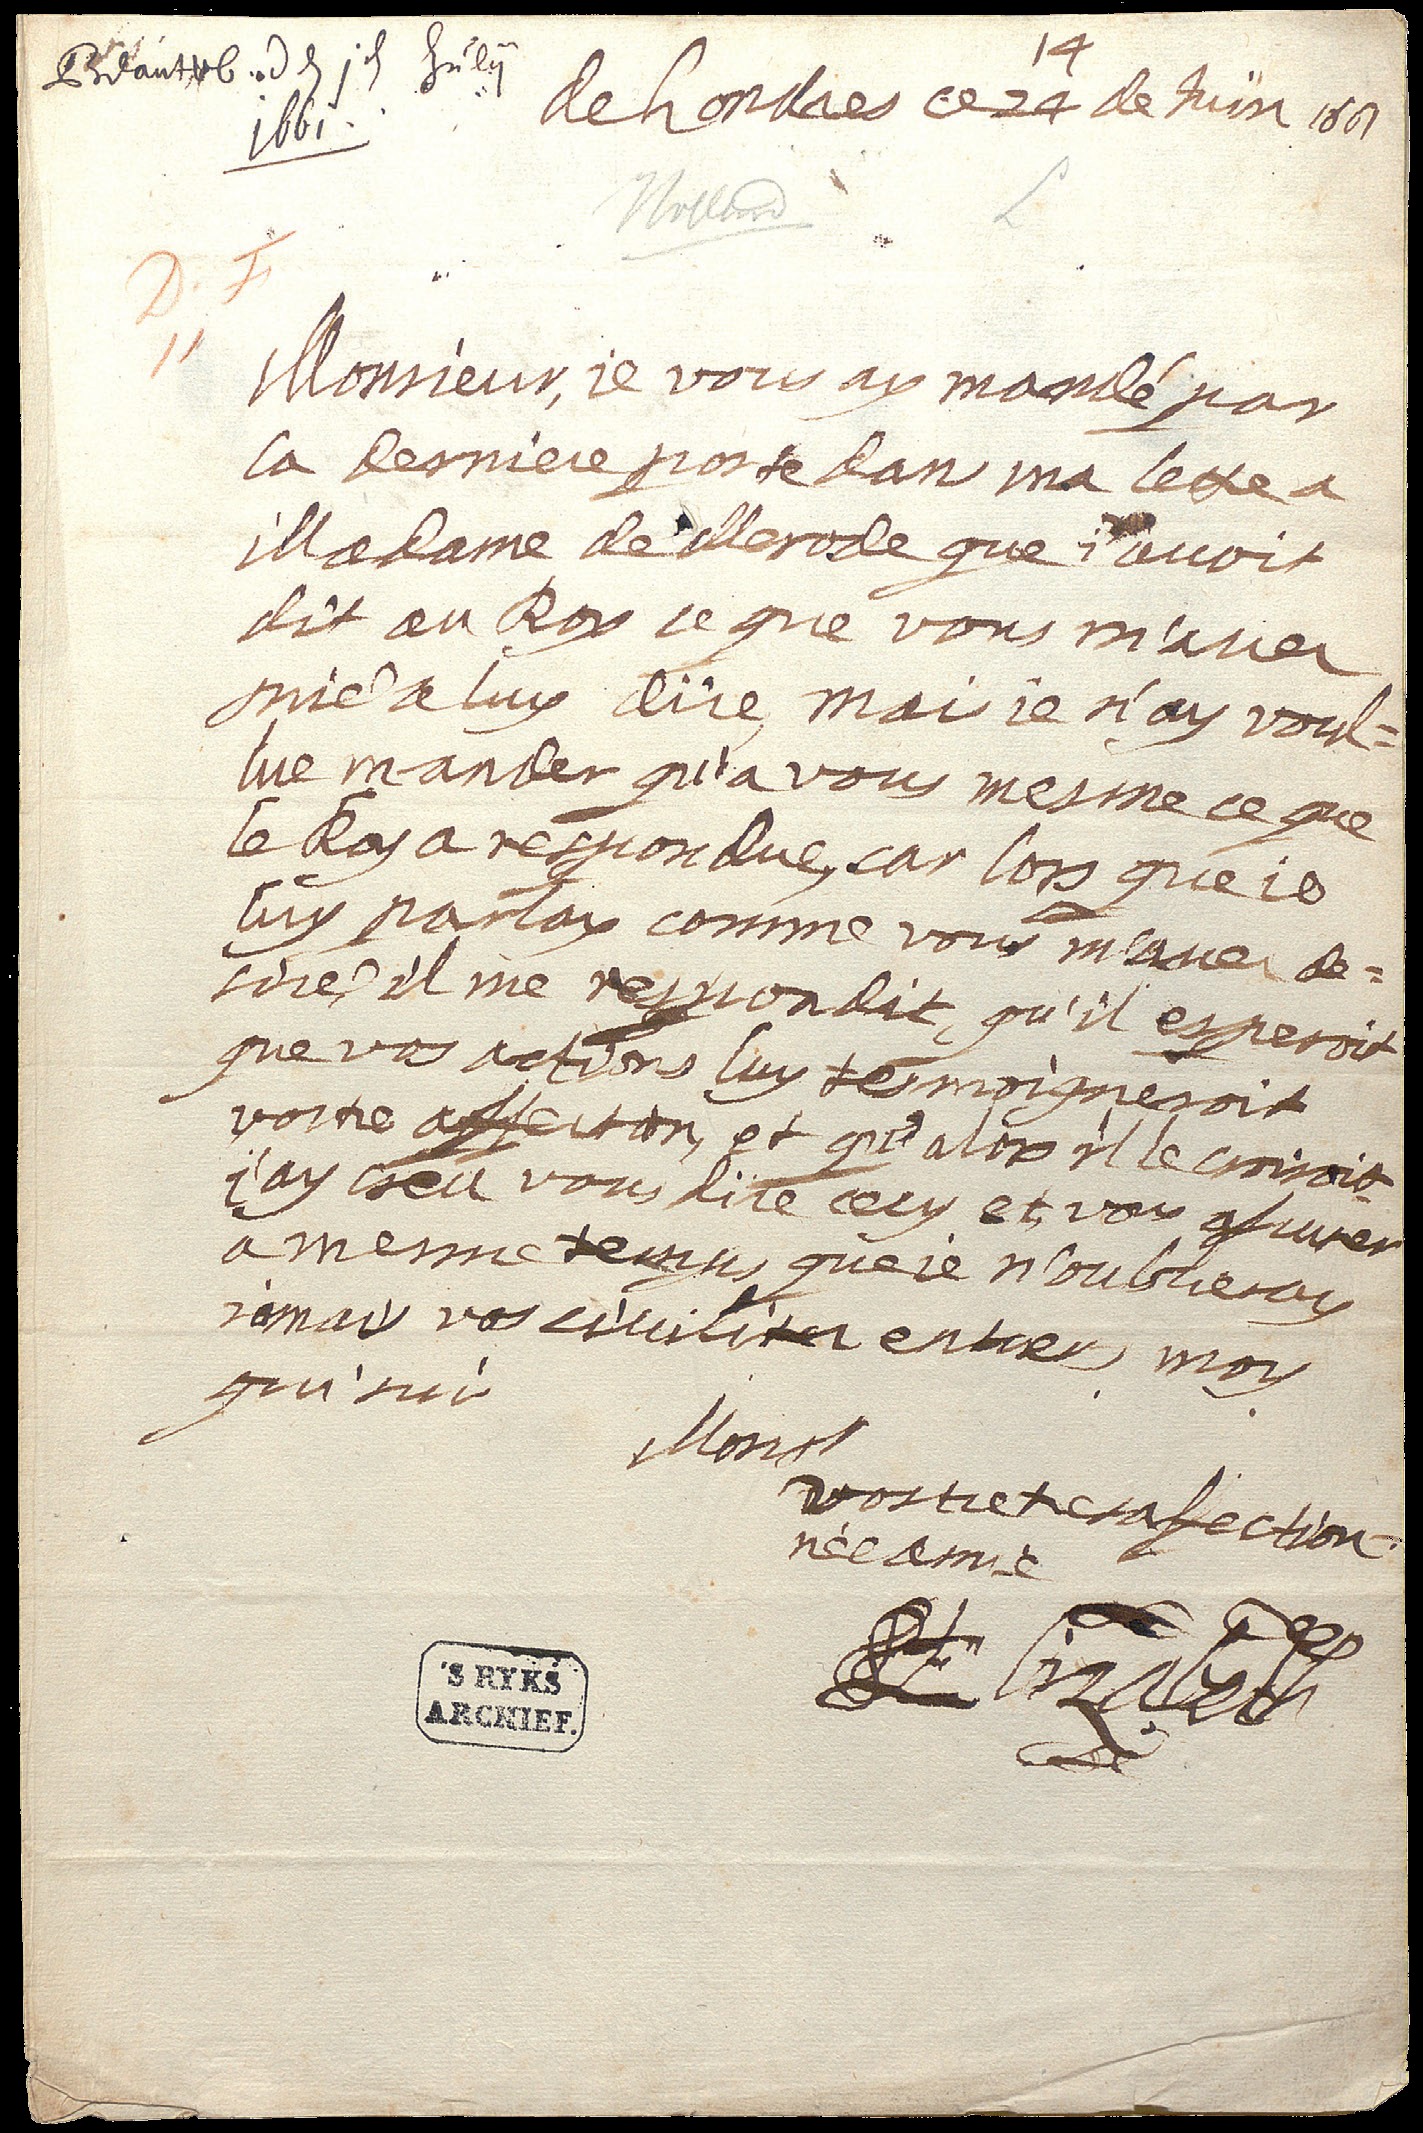 Beantwb. den jen Julÿ
1661.
14
de Londres ce 24 de Juin 1661
Holland L
D. F.
11
Monsieur, ie vous ay mandé par
la derniere poste dans ma lettre a
Madame de Merode que i'auoit
dit au Roy ce que vous m'auez
prié a luy dire, mais ie n'ay voul=
lue mander qu'a vous mesme ce que
le Roy a respondue, car lors que ie
luy parlay comme vous m'auez de=
siré, il me respondit, qu'il esperoit
que vos actions luy tesmoigneroit
vostre affection, et qu'alors il le croiroit
i'ay creu vous dire cecy et vous assurer
a mesme temps que ie n'oublieray
iamais vos ciuilitez enuers moy
qui suis
Monsr
vostre tres affection=
née amie
Elizabeth
'S RYKS
ARCHIEF.